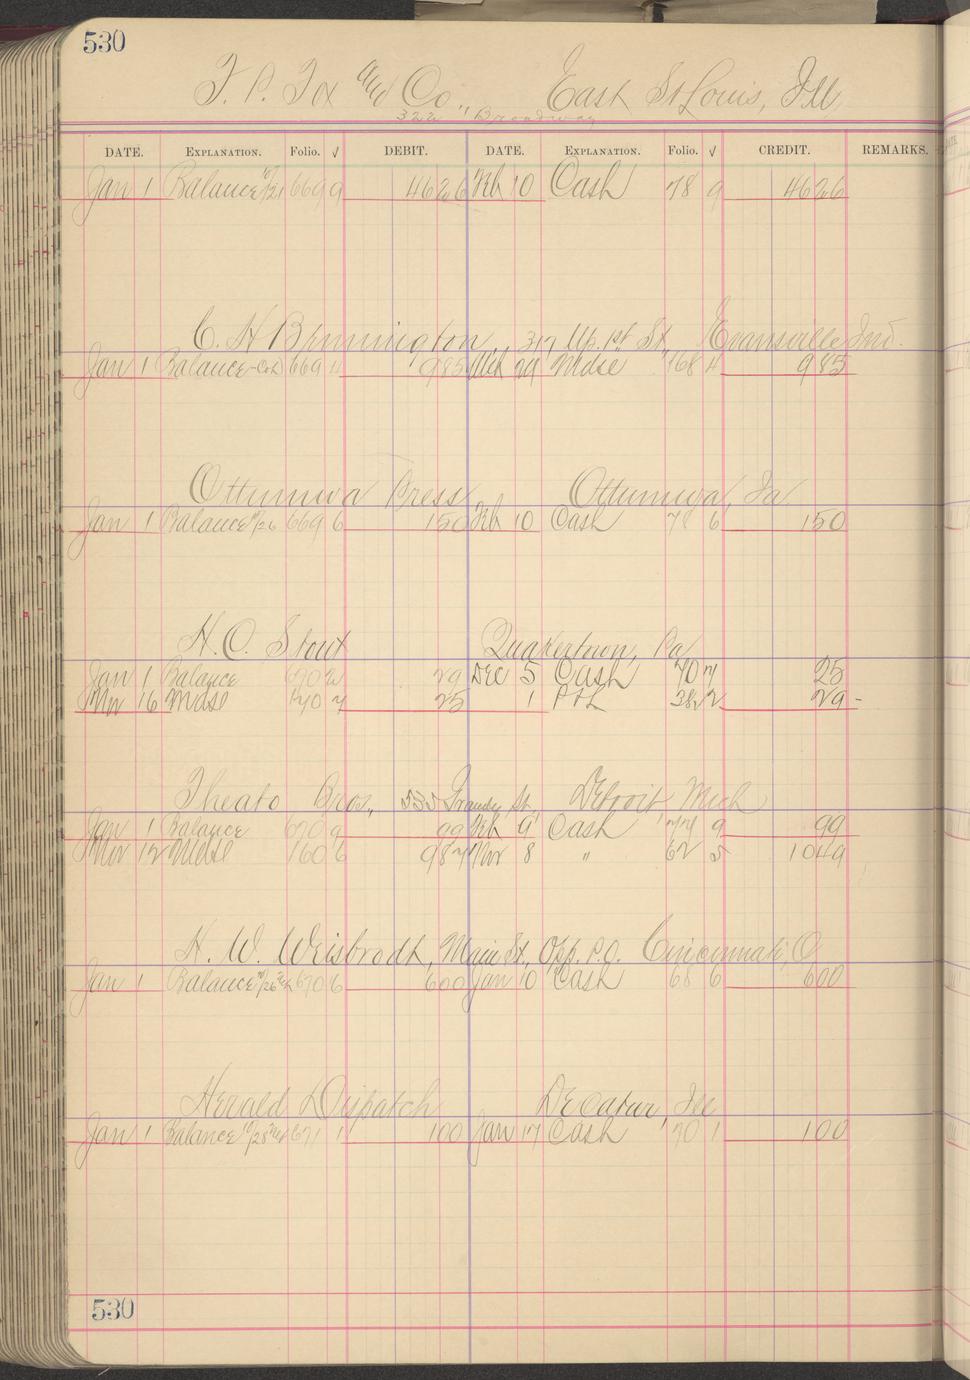 530
F. P. Fox and Co., East St Louis, Ill
322 Broadway
DATE. EXPLANATION. Folio. √ DEBIT. DATE. EXPLANATION. Folio. √ CREDIT. REMARKS.
Jan 1 Balance 669 9 4626 Feb 10 Cash 78 9 4626
C. H. 317 Up. 1st St, Evansville Ind.
Jan 1 Balance 669 4 985 Mch 29 Mdse 168 4 985
Ottumwa Press Ottumwa, Ia
Jan 1 Balance 10/26 669 6 150 Feb 10 Cash 78 6 150
H. O. Stout Quakertown, Pa
Jan 1 Balance 670 2 29 Dec 5 Cash 70 7 25
Nov 16 Mdse 170 7 25 1 P&L 382 2 29 -
Theato Bros., 535 Grandy St, Detroit Mich
Jan 1 Balance 670 9 99 Feb 9 Cash 77 9 99
Nov 12 Mdse 160 6 987 Nov 8 " 62 5 1049
H. W. Weisbrodt, Main St., Opp. P.O. Cincinnati, O
Jan 1 Balance 670 6 600 Jan 10 Cash 68 6 600
Herald Dispatch Decatur, Ill
Jan 1 Balance 671 1 100 Jan 17 Cash 70 1 100
530